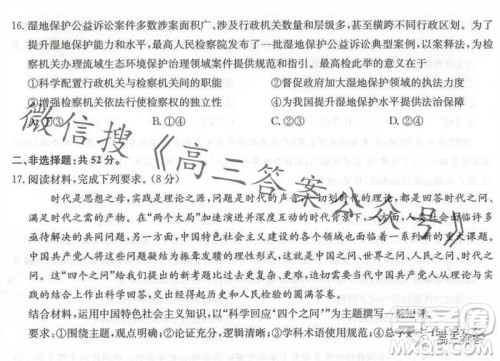 16.湿地保护公益诉讼案件多数涉案面积广、涉及行政机关数量和层级多,甚至横跨不同行政区划。为了
提升湿地保护能力和水平,最高人民检察院发布了一批湿地保护公益诉讼典型案例,以案释法,为检
察机关办理流域生态环境保护治理领域案件提供规范和指引。最高检此举的意义在于
①科学配置行政机关与检察机关间的职能 ②督促政府加大湿地保护领域的执法力度
③增强检察机关依法行使检察权的独立性 ④为我国提升湿地保护水平提供法治保障
A.①③ B.①④ C.②③ D.②④
二、非选择题:共52分。
17.阅读材料,完成下列要求。(8分)
时代是思想之母,实践是理论之源,问题是时代的声音。一切划时代的理论,都是回答时代之问、
满足时代之需的产物。在“两个大局”加速演进并深度互动的时代背景下,一方面,人类社会面临许多
亟待解决的共同问题,另一方面,中国特色社会主义建设的各个领域也面临着一系列新的重大课题。
中国共产党人将其归结为“四个之问”,即中国之问、世界之问、人民之问、时代之
问。这“四个之问”给我们提出了一些重大而紧迫的时代课题,中国共产党人从理论与实
践的结合上交出了经得起历史和人民检验的圆满答卷。
结合材料,运用中国特色社会主义知识,以“科学回应‘四个之问’”为主题撰写一篇短评。
要求:①围绕主题,观点明确;②论证充分,逻辑清晰;③学科术语使用规范;④总字
微信搜《高三答案公众号》